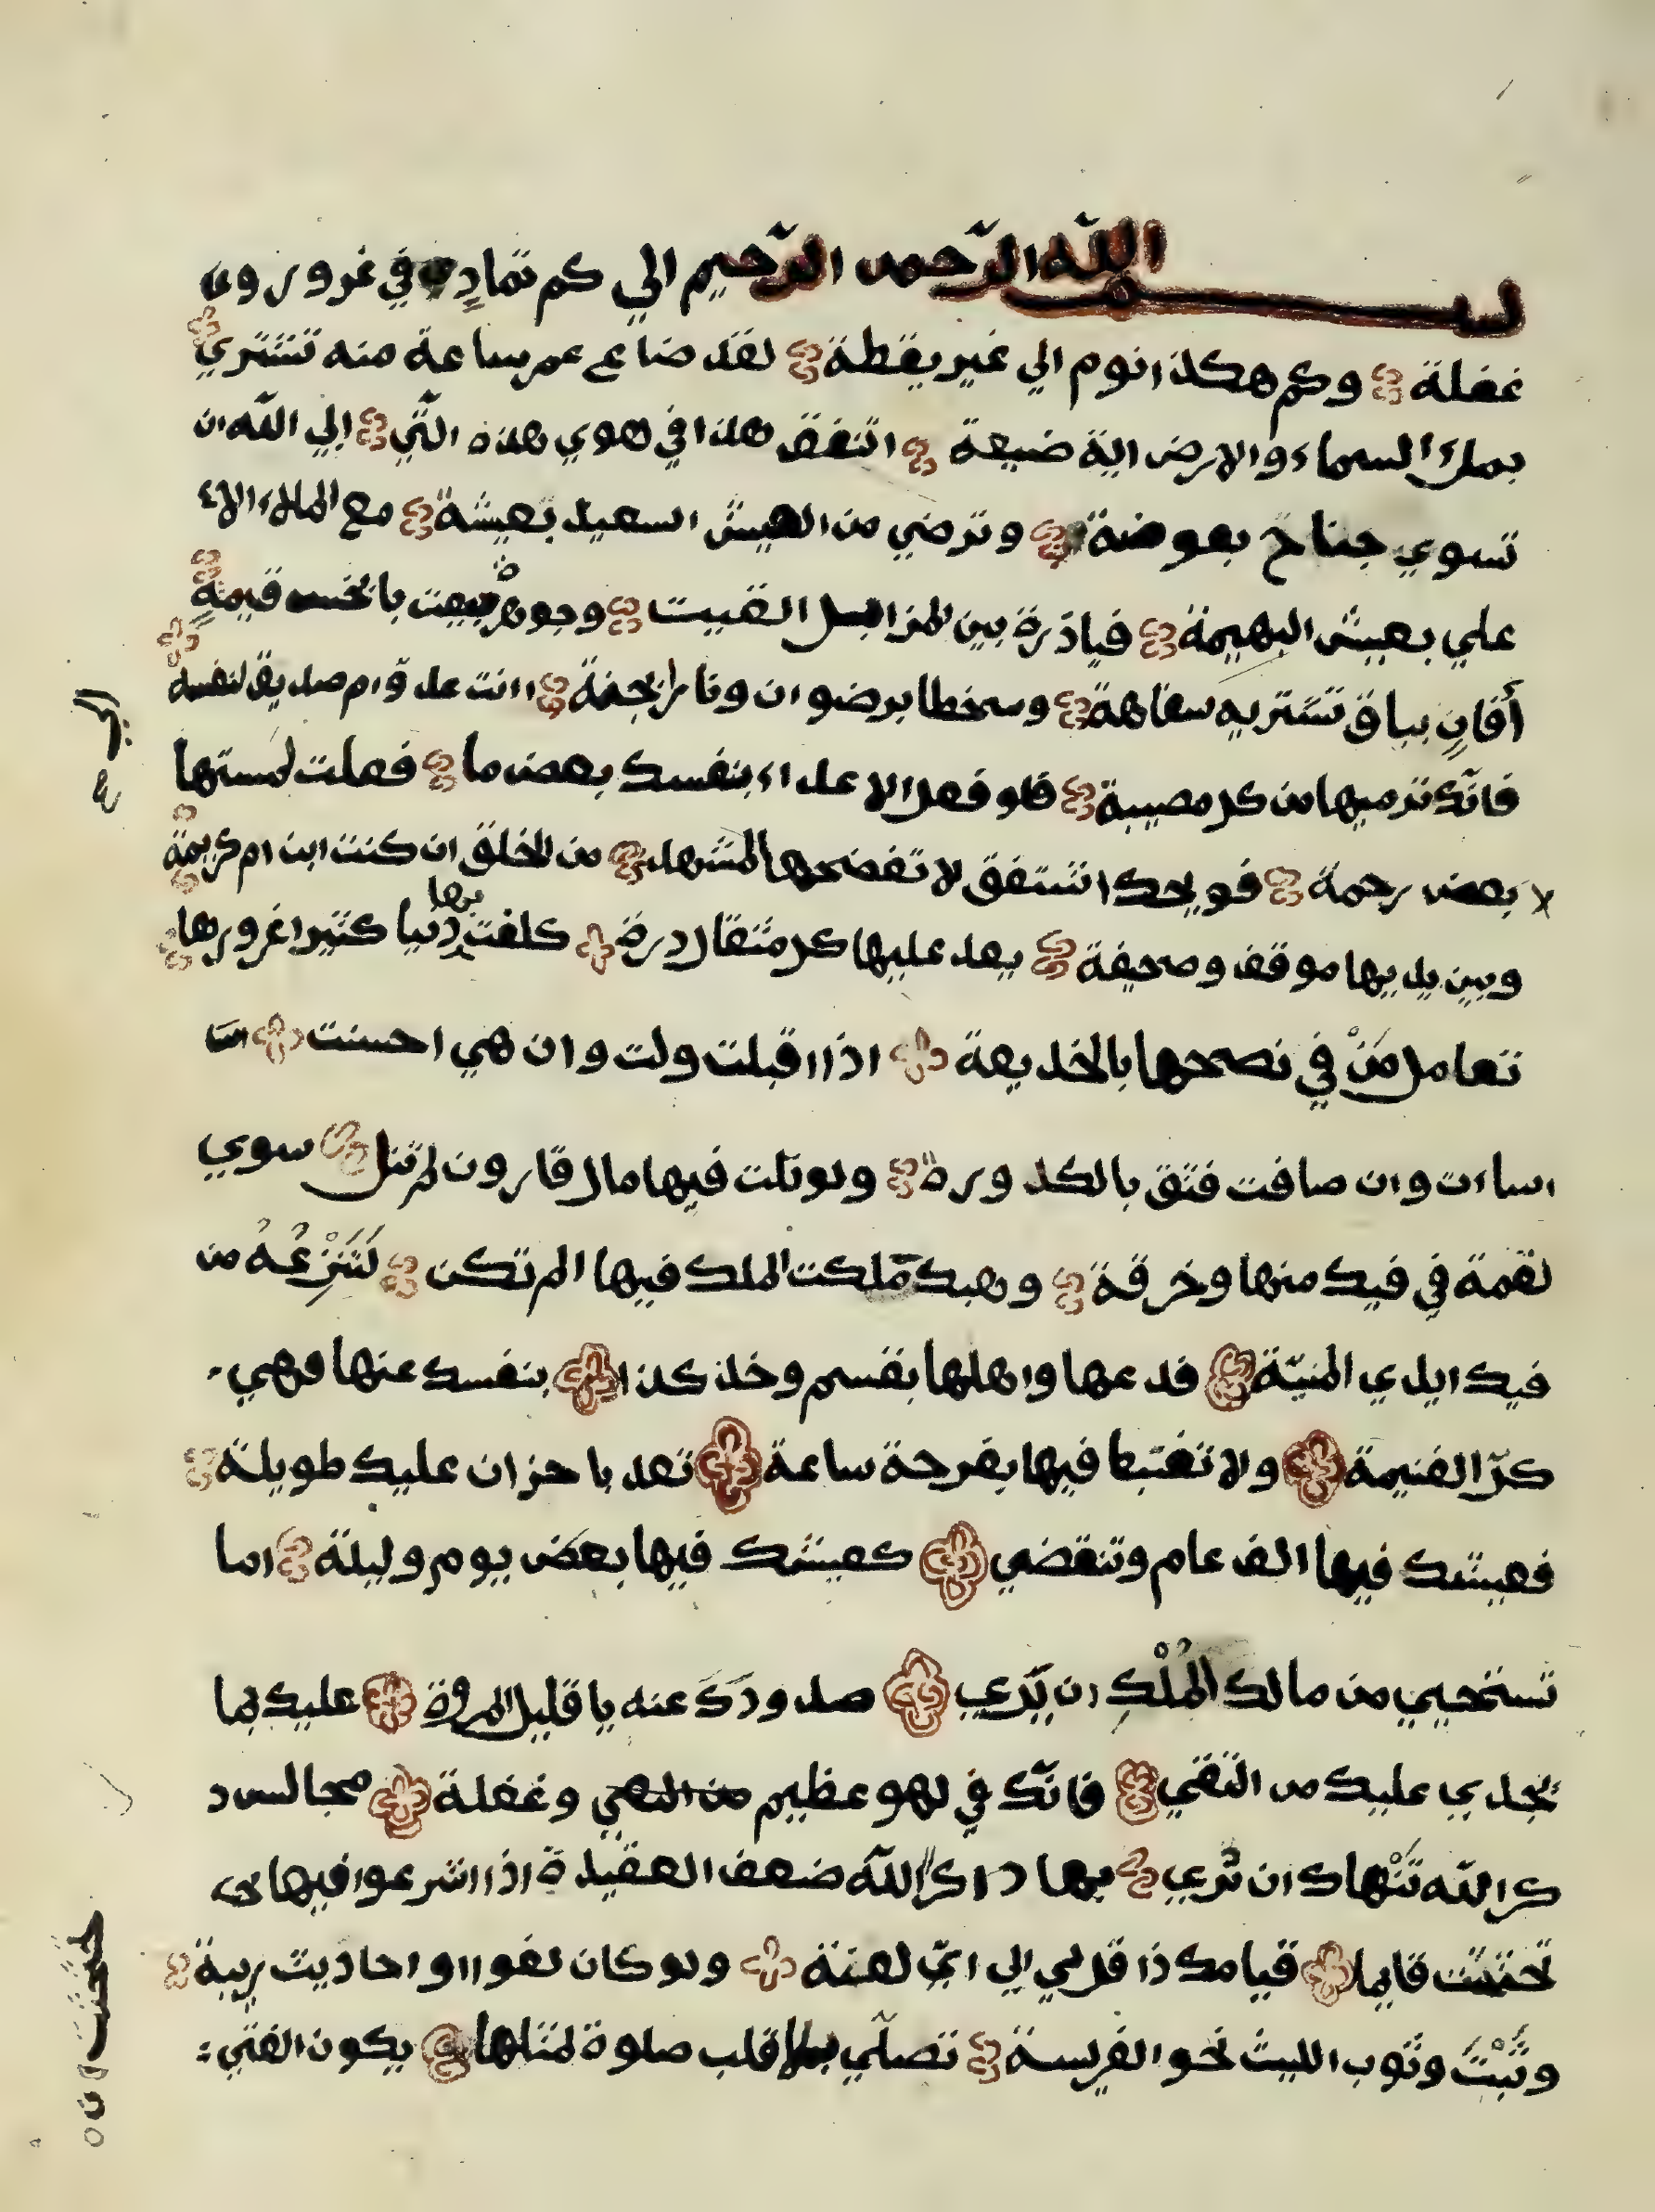 بسم الله الرّحمن الرّحيم الي كم تمادي في غرور وى
غفلة وكم هكذا نوم الي غير يقظة لقد ضاع عمر ساعة منه تشتري
بملء السماء والارض اية ضيعة اتنفق هذا في هوي هذه الّتي إلي الله ان
تسوي جناح بعوضة وترضي من العيش السعيد بعيشة مع الملاء الاء
علي بعيش البهيمة فيا درة بين المزابل القيت وجوهر بيعت بابخس قيمةٍ
أفانٍ بباق تشتريه سفاهة وسخطا برضوان ونارا بجنة اانت عدوّ ام صديق لنفسه
فانّك ترميها من كل مصيبة فلو فعل الاعداء بنفسك بعض ما فعلت لمستها
لا بعض رحمة فويحك اشتفق لا تفضحها المشهد من الخلق ان كنت ابن ام كريمة
وبين يديها موقف وصحيفة يعد عليها كل مثقال درة كلفت بها دنيا كثيرا غرورها
تعامل مَنْ في نصحها بالخديعة اذا اقبلت ولت وان هي احسنت اسا
اساءت وان صافت فثق بالكدورة ولو نلت فيها مال قارون لم تنل سوي
لقمة في فيك منها وخرقة وهبك ملكت الملك فيها الم تكن لَتَنْزِعُهُ من
فيك ايدي المنيّة فدعها واهلها بقسم وخذ كذا بنفسك عنها فهي
كلّ الغنيمة ولا تغتبط فيها بفرحة ساعة تعد باحزان عليك طويلة
فعيشك فيها الف عام وتنقضي كعيشك فيها بعض يوم وليلة اما
تستحيي من مالك المُلْكِ ان يّري صدودَكَ عنه يا قليل المروة عليك بما
يجدي عليك من التقي فانّك في لهو عظيم وغفلة مجالس د
كر الله تَنْهاك ان تُري بها داكرا لله ضعف العقيدة اذا اشرعوا فيها
تحتثت قايما قيامك ذا قل لي الي ايّ لعنة ولو كان لغوا او احاديث ريبة
وثَبْتَ وثوب الليث نحو الفريسة تصلّي بلا قلب صلوة لمثلها يكون الفتي